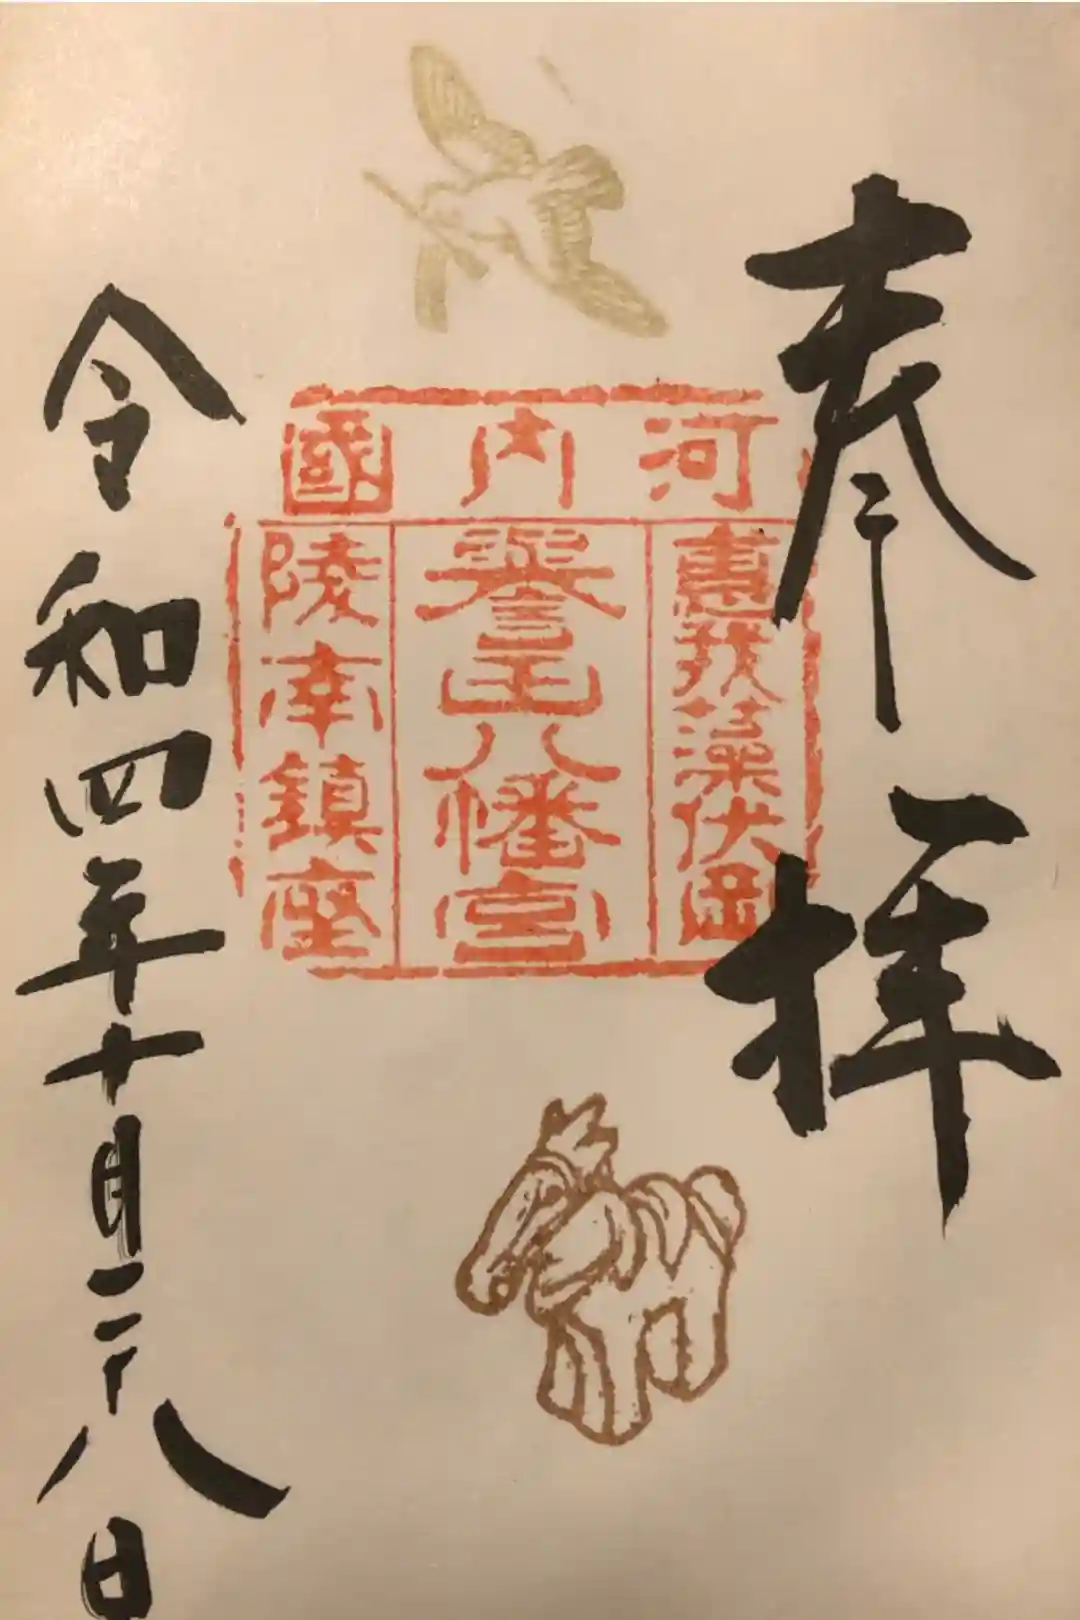 奉拝
河内國
惠我藻伏岡
誉田八幡宮
陵南鎮座
令和四年十月二十八日